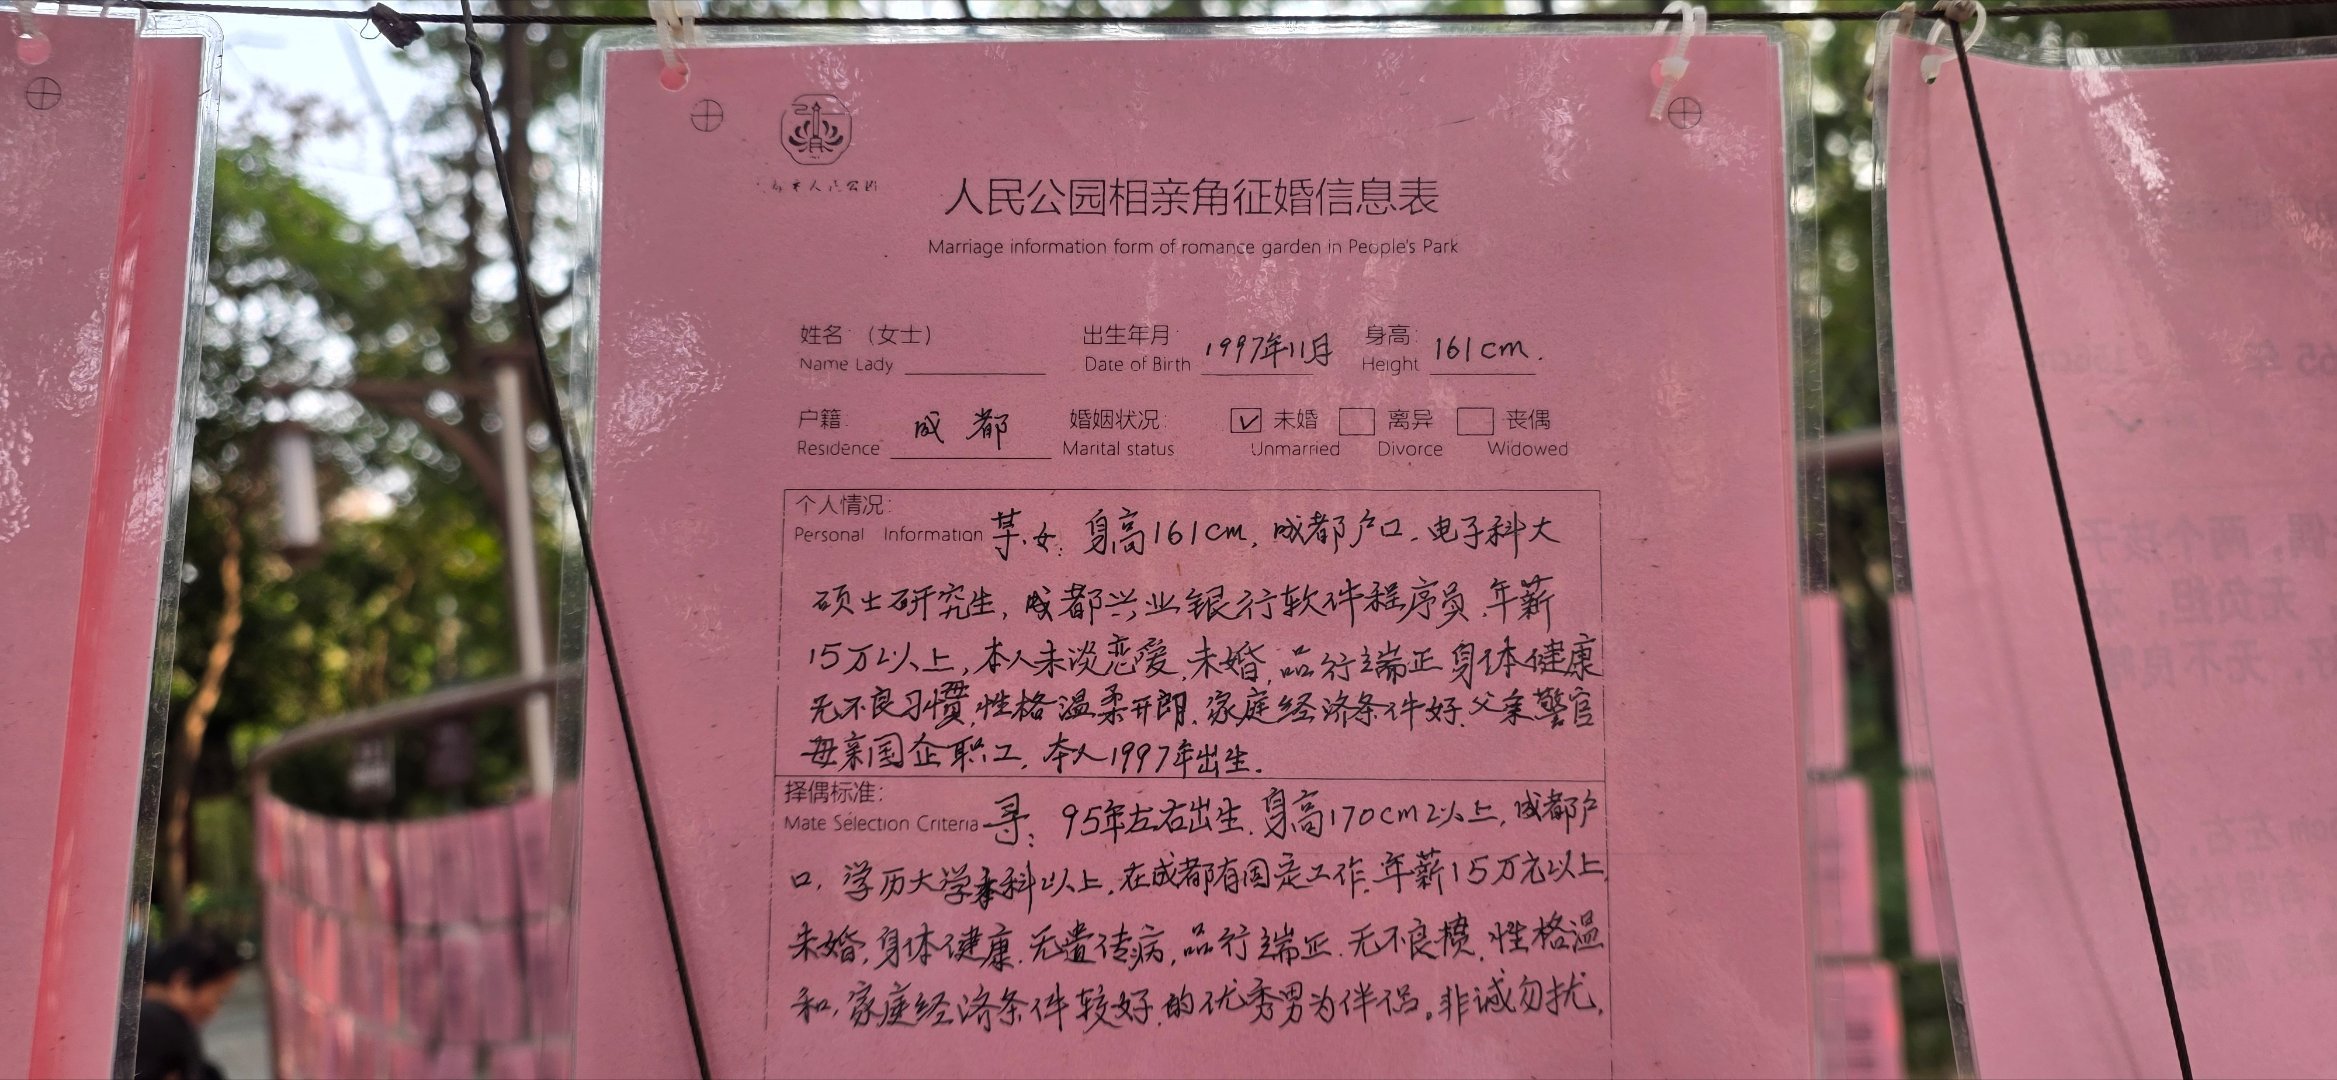 人民公园相亲角征婚信息表
Marriage information form of romance garden in People's Park
姓名：（女士） 出生年月： 1997年11月 身高： 161cm.
Name Lady Date of Birth Height
户籍： 成都 婚姻状况： ☑ 未婚 □ 离异 □ 丧偶
Residence Marital status Unmarried Divorce Widowed
个人情况：
Personal Information 某女：身高161cm，成都户口．电子科大
硕士研究生，成都兴业银行软件程序员．年薪
15万以上，本人未谈恋爱．未婚，品行端正身体健康
无不良习惯，性格温柔开朗．家庭经济条件好．父亲警官
母亲国企职工，本人1997年出生．
择偶标准：
Mate Selection Criteria 寻：95年左右出生．身高170cm以上，成都户
口，学历大学本科以上，在成都有固定工作．年薪15万元以上，
未婚，身体健康．无遗传病，品行端正．无不良惯．性格温
和，家庭经济条件较好．的优秀男为伴侣。非诚勿扰．
65年
两个孩子
无负担，
无不良嗜